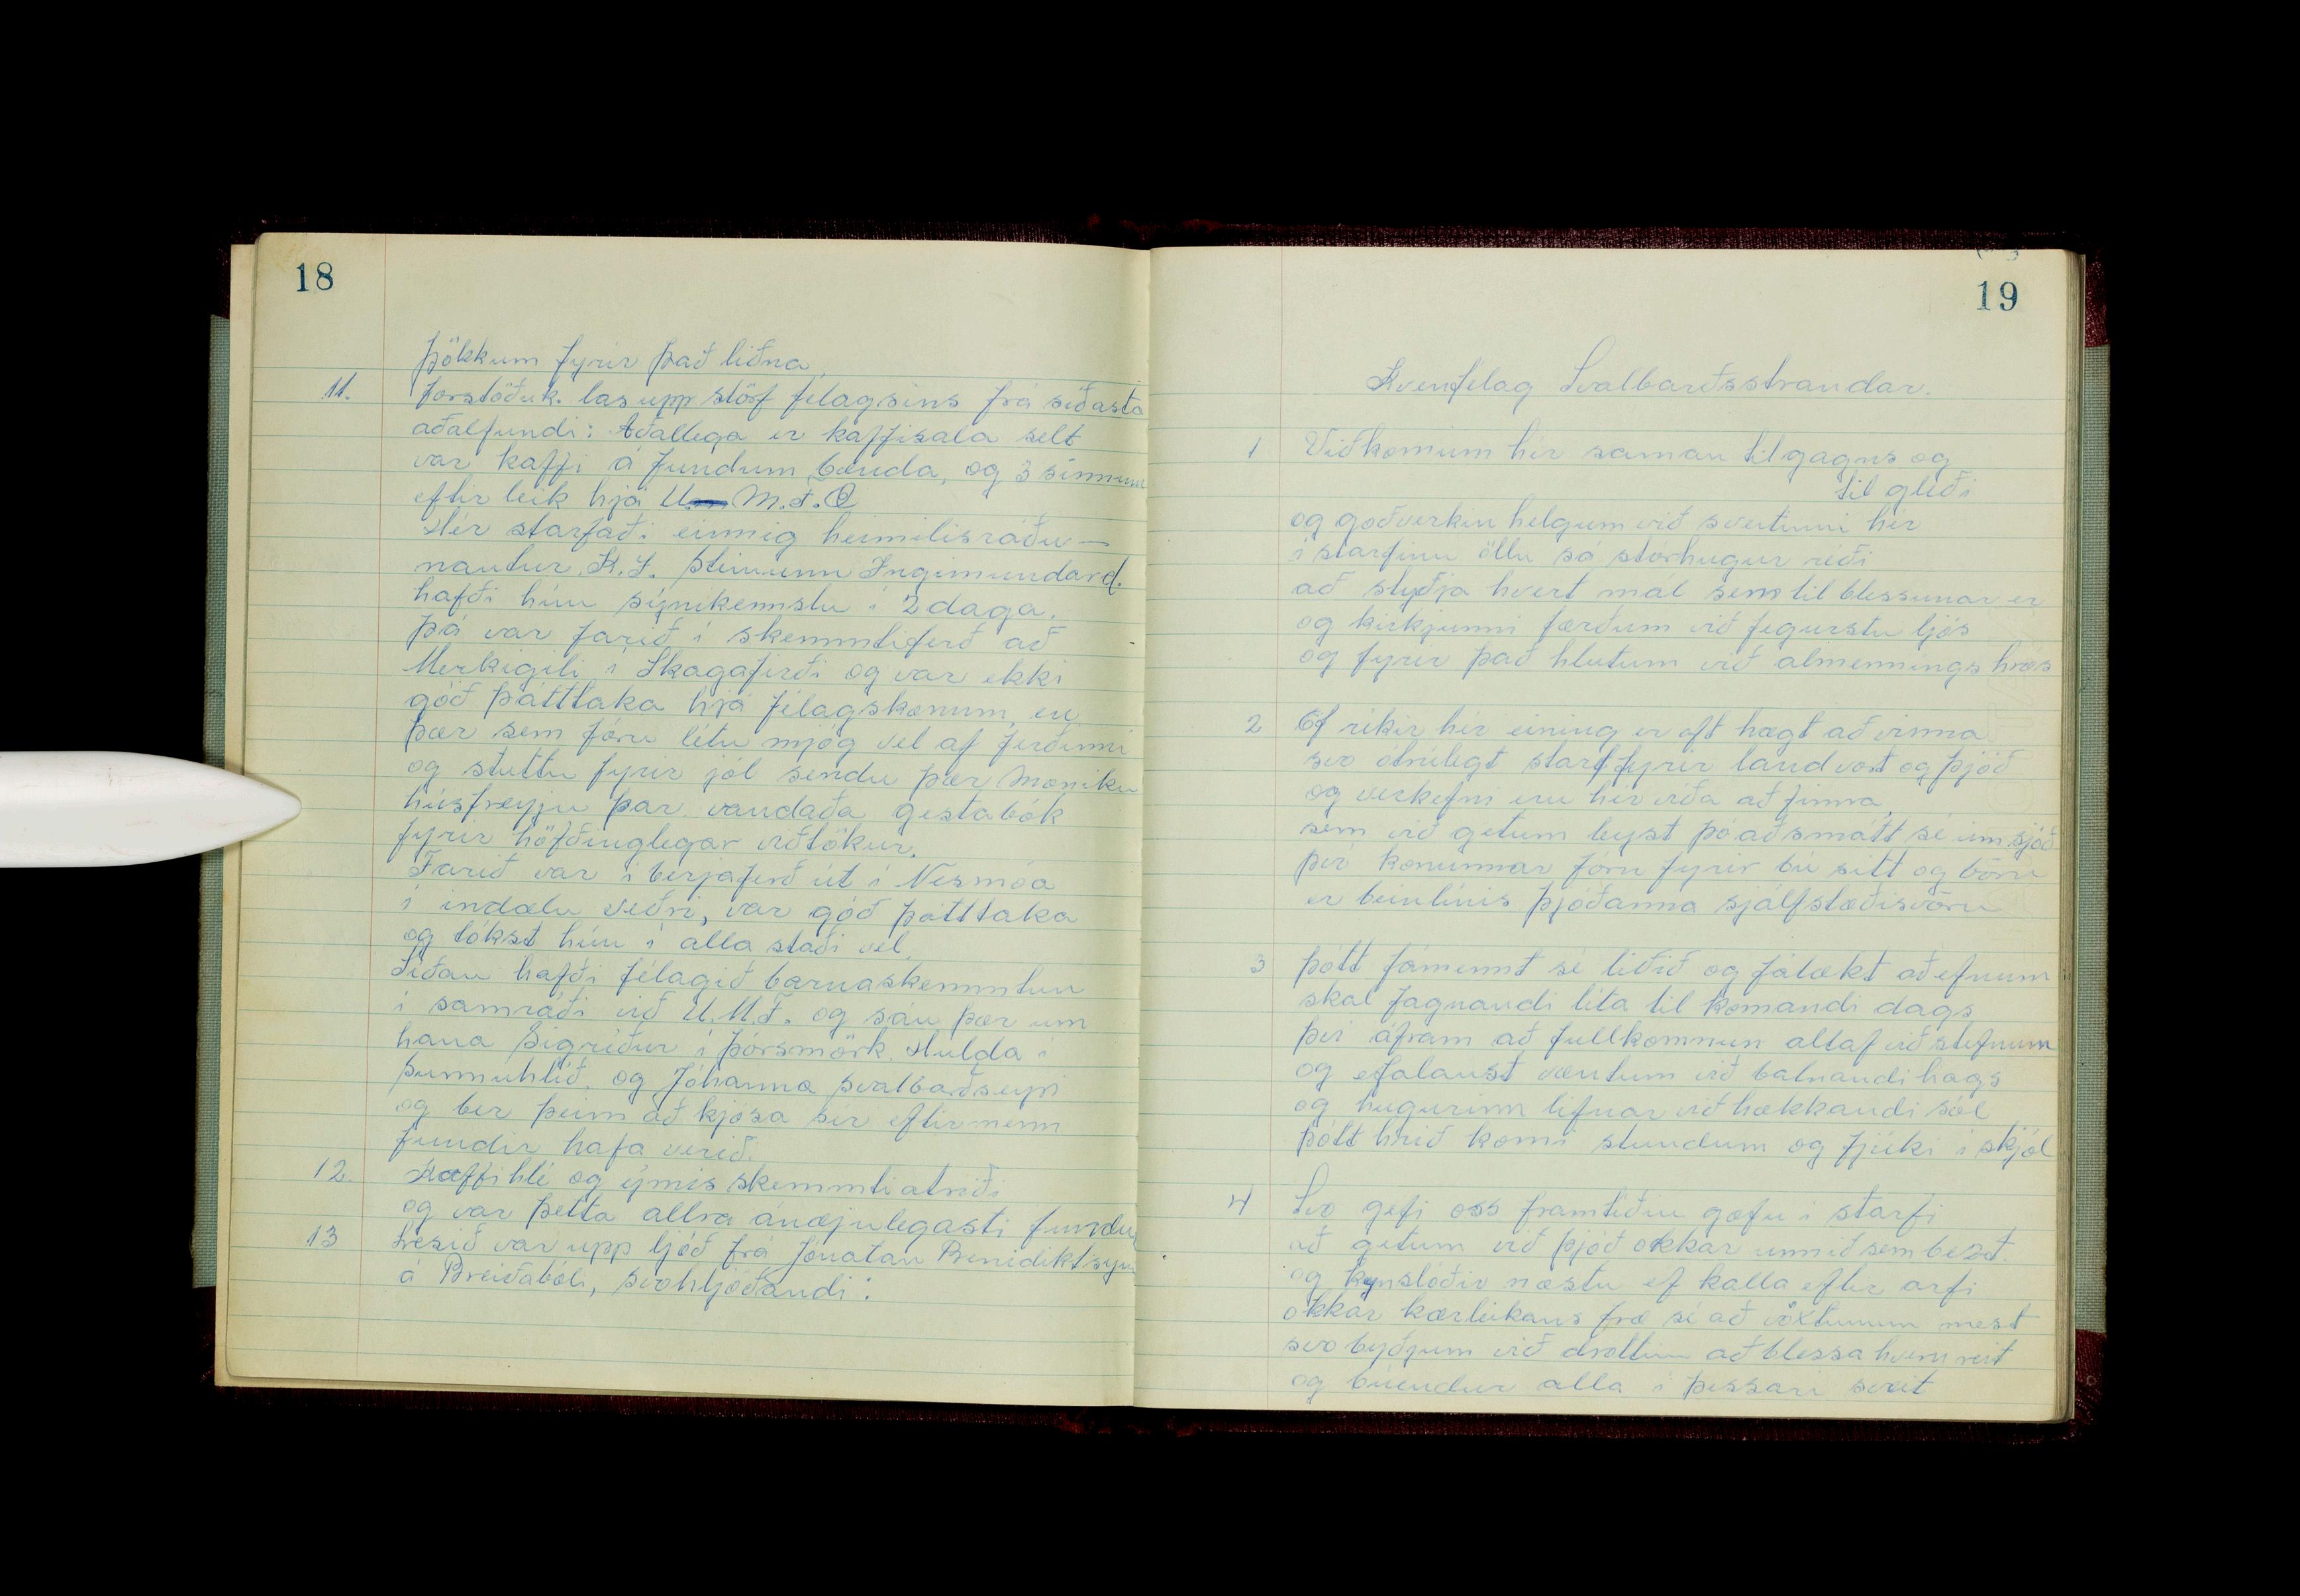 18
þökkum fyrir það liðna,
11. forstöðuk. las upp störf félagsins frá síðasta
aðalfundi: Aðallega er kaffisala selt
var kaffi á fundum bænda, og 3 sinnum
eftir leik hjá U. M.F.Æ
Hér starfaði einnig heimilisráðu-
nautur K.Í. Steinunn Ingimundard.
hafði hún sýnikennslu í 2 daga.
þá var farið í skemmtiferð að
Merkigili í Skagafirði og var ekki
góð þátttaka hjá félagskonum, en
þær sem fóru létu mjög vel af ferðinni
og stuttu fyrir jól sendu þær Moniku
húsfreyju þar vandaða gestabók
fyrir höfðinglegar viðtökur.
Farið var í berjaferð út í Nesmóa
í indælu veðri, var góð þátttaka
og tókst hún í alla staði vel.
Síðan hafði félagið barnaskemmtun
í samráði við U.M.F. og sáu þær um
hana Sigríður í Þórsmörk. Hulda í
Sunnuhlíð. og Jóhanna Svalbarðseyri
og ber þeim að kjósa sér eftirmenn
fundir hafa verið.
12. Kaffihlé og ýmis skemmtiatriði
og var þetta allra ánæjulegasti fundur
13 Lesið var upp ljóð frá Jónatan Benidiktsyni
á Breiðabóli, svohljóðandi:
19
Kvenfelag Svalbarðsstrandar.
1 Við komum hér saman til gagns og
til gleði
og goðverkin helgum við sveitinni hér
í starfinu öllu sá stórhugur réði
að styðja hvert mál sem til blessunar er
og kirkjunni færðum við fegurstu ljós
og fyrir það hlutum við almennings hrós
2 Ef ríkir hér eining er oft hægt að vinna
svo ótrúlegt starf fyrir land vort og þjóð
og verkefni eru hér víða að finna,
sem við getum leyst þó að smátt sé um sjóð
því konunnar fórn fyrir bú sitt og börn
er beinlínis þjóðanna sjálfstæðisvörn
3 þótt fámennt sé liðið og fálækt að efnum
skal fagnandi líta til komandi dags
því áfram að fullkomnun alltaf við stefnum
og efalaust væntum við batnandi hags
og hugurinn lifnar við hækkandi sól
þótt hríð komi stundum og fjúki í skjól
4 Svo gefi oss framtíðin gæfu í starfi
að getum við þjóð okkar unnið sem bezt.
og kynslóðir næstu ef kalla eftir arfi
okkar kærleikans fræ sé að vöxtunum mest
svo byðjum við drottinn að blessa hvern reit
og búendur alla í þessari sveit